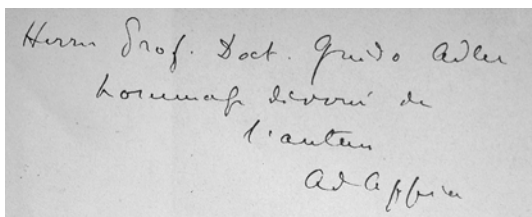 Herrn Prof. Doct. Guido Adler
hommage dévoué de
l'auteur